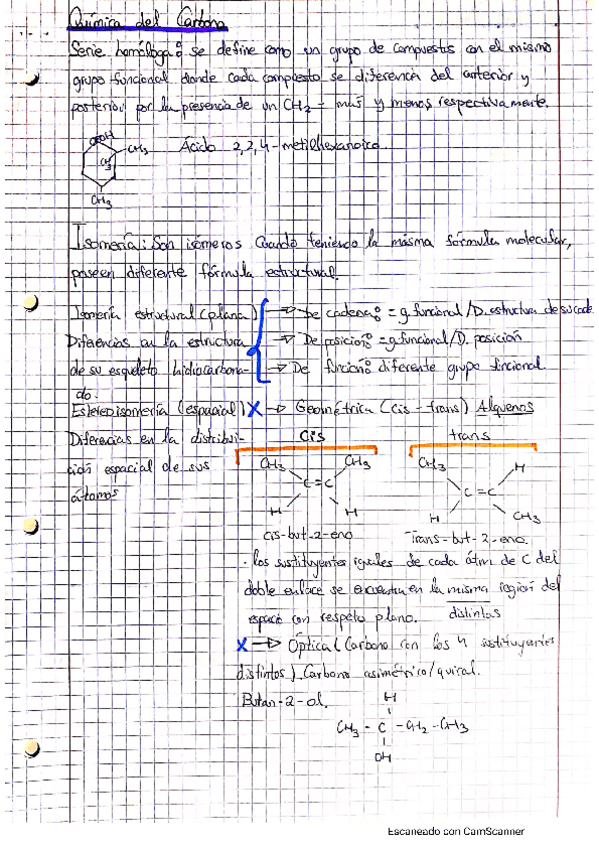 Química del Carbono
Serie homóloga: se define como un grupo de compuestos con el mismo
grupo funcional donde cada compuesto se diferencia del anterior y
posterior por la presencia de un CH2 - más y menos respectivamente.
COOH
CH3
CH3
CH3
Ácido 2,2,4-metilhexanoico
Isomería: Son isómeros cuando teniendo la misma fórmula molecular,
poseen diferente fórmula estructural.
Isomería estructural (plana)
Diferencias en la estructura
de su esqueleto hidrocarbona-
do.
→ De cadena: = g. funcional / D. estructura de su cade.
→ De posición: = g funcional / D. posición
→ De función: diferente grupo funcional
Estereoisomería (espacial) X → Geométrica (cis - trans) Alquenos
Diferencias en la distribu-
ción espacial de sus
átomos
Cis
trans
CH3 CH3
C = C
H H
CH3 H
C = C
H CH3
cis-but-2-eno
Trans-but-2-eno.
. los sustituyentes iguales de cada átm de C del
doble enlace se encuentra en la misma región del
espacio con respeto plano. distintas
X → Óptica (Carbono con los 4 sustituyentes
distintos) Carbono asimétrico / quiral.
Butan-2-ol.
H
CH3 - C - CH2 - CH3
OH
Escaneado con CamScanner